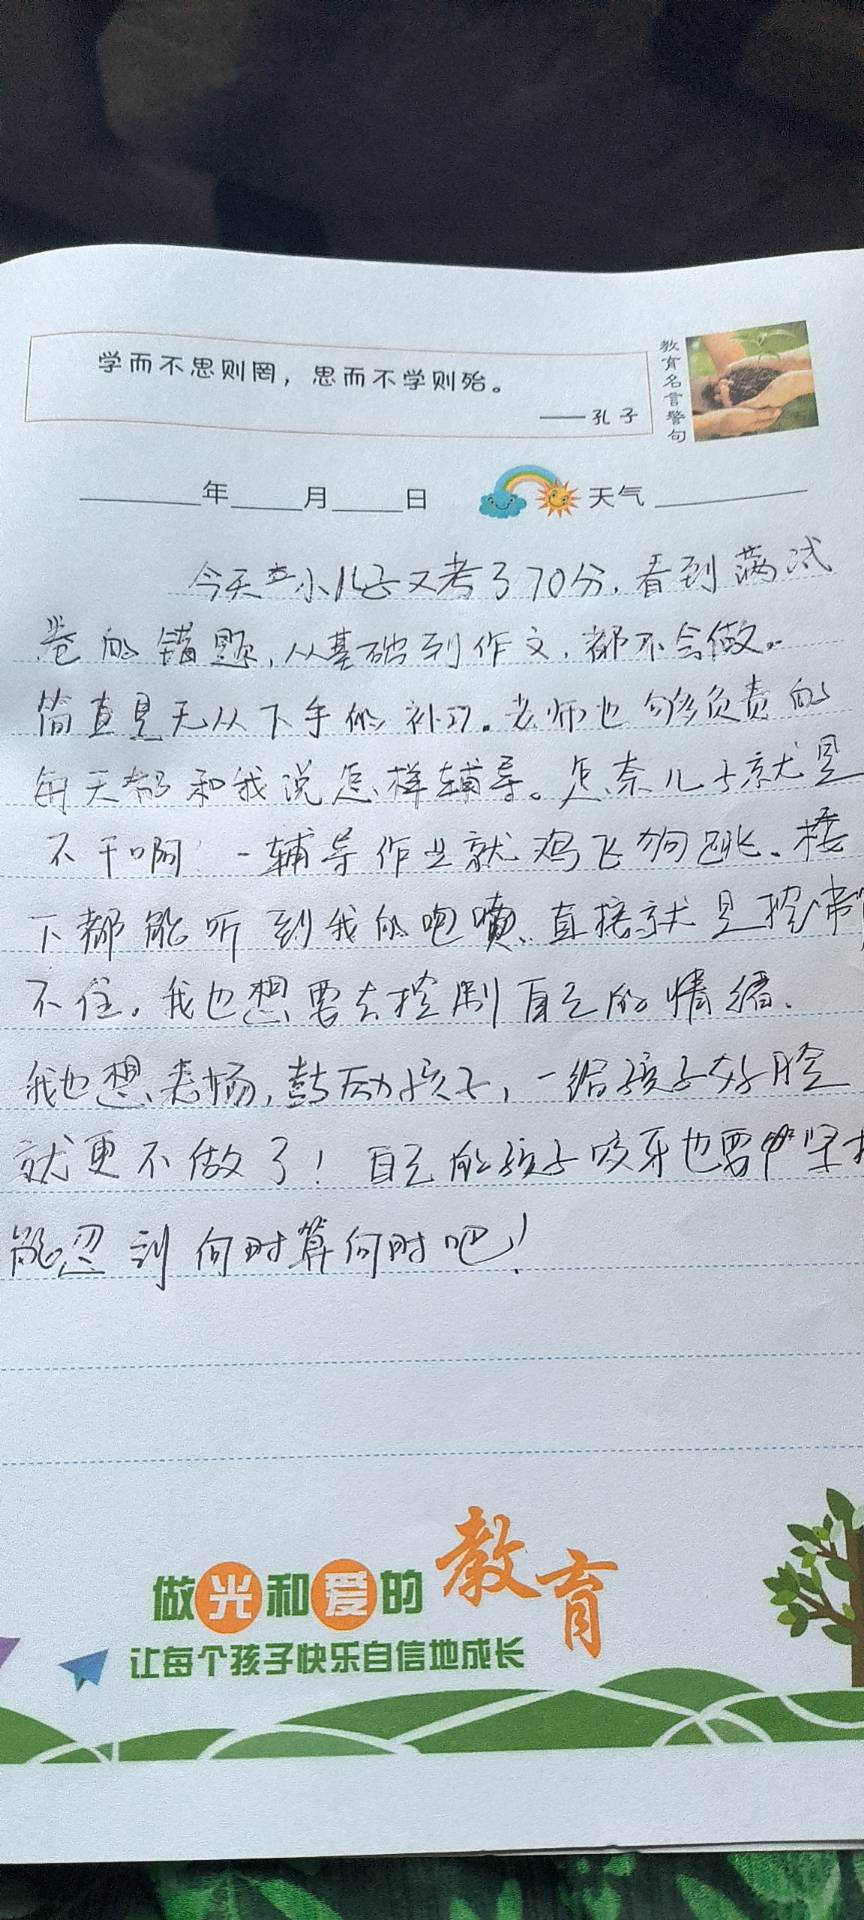 学而不思则罔，思而不学则殆。
——孔子
教育名言警句
年 月 日 天气
今天小儿子又考了70分，看到满试
卷的错题，从基础到作文，都不会做。
简直是无从下手的补习。老师也够负责的
每天都和我说怎样辅导。怎奈儿子就是
不干啊！一辅导作业就鸡飞狗跳。楼
下都能听到我的咆哮，直接就是控制
不住。我也想要去控制自己的情绪。
我也想表扬，鼓励孩子，一给孩子好脸
就更不做了！自己的孩子咬牙也要坚持
能忍到何时算何时吧！
做光和爱的教育
让每个孩子快乐自信地成长